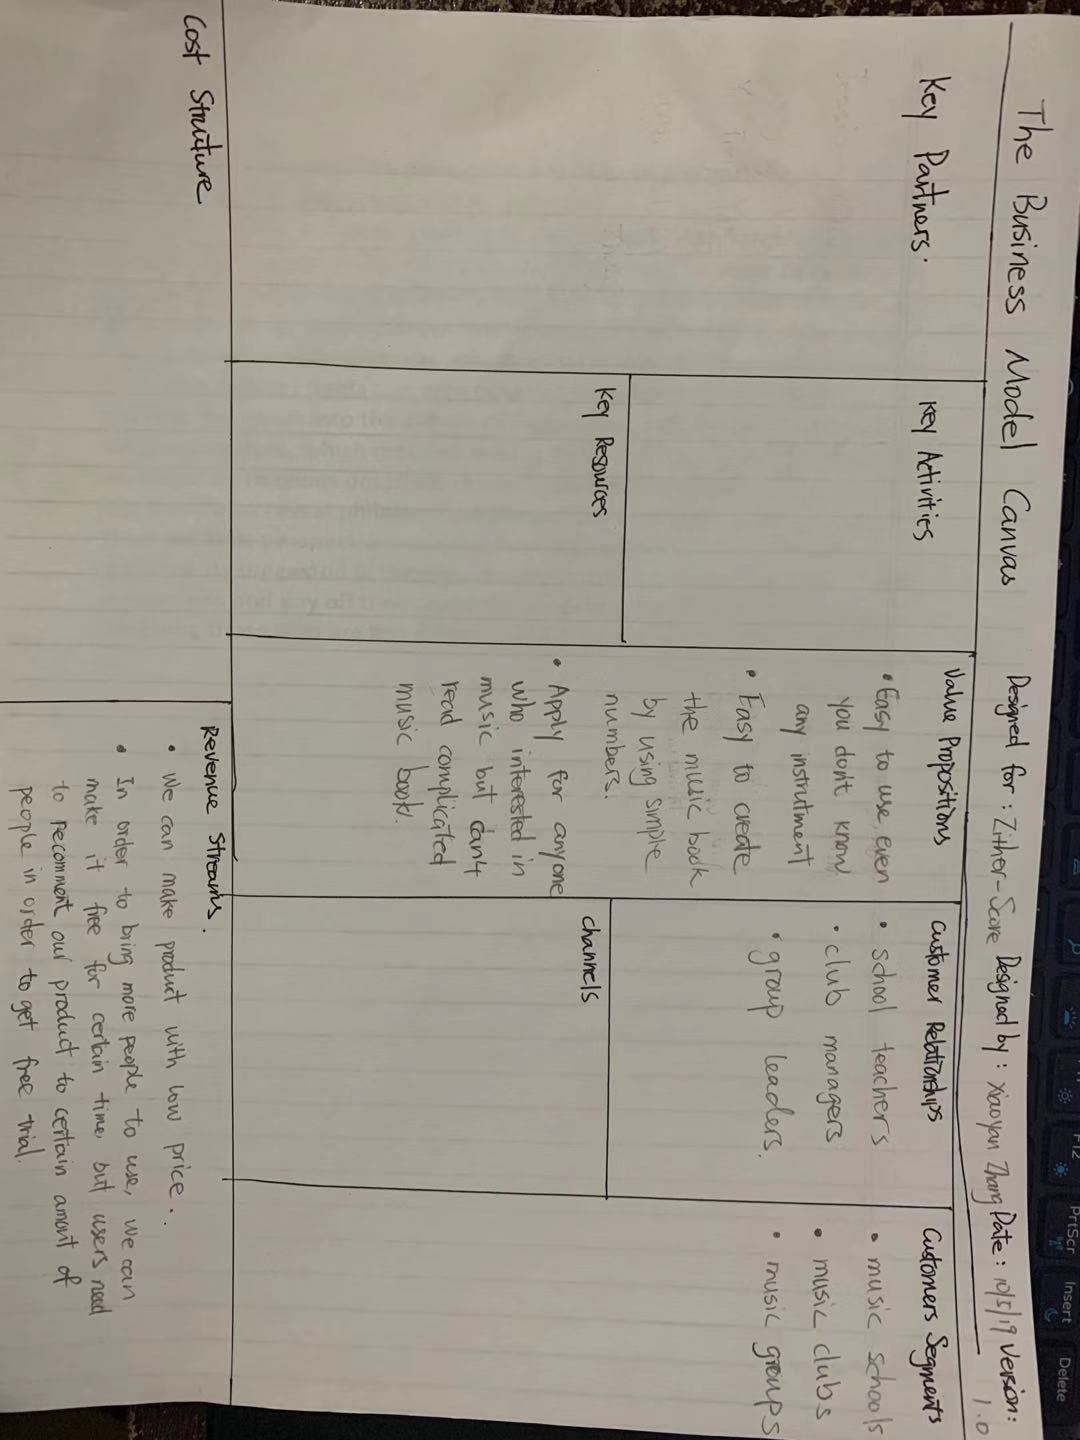 The Business Model Canvas
Designed for : Zither-Score Designed by : Xiaoyan Zhang Date : 10/5/19 Version :
1.0
Key Partners.
Key Activities
Key Resources
Value Propositions
• Easy to use, even
you don't know
any instrutment
• Easy to create
the music book
by using simple
numbers.
• Apply for anyone
who interested in
music but can't
read complicated
music book.
Customer Relationships
• school teachers
• club managers
• group leaders.
Channels
Customers Segments
• music schools
• music clubs
• music groups
Cost Struture
Revenue Streams.
• We can make product with low price.
• In order to bring more people to use, we can
make it free for certain time, but users need
to recomment our product to certain amount of
people in order to get free trial.
PrtScr
Insert
Delete
F12